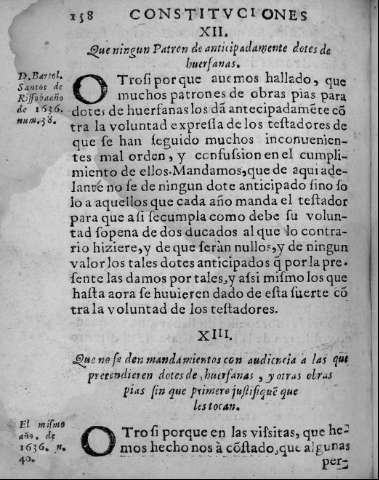 158 CONSTITVCIONES
XII.
Que ningun Patron de anticipadamente dotes de
huerfanas.
D. Bartol.
Santos de
Rissobaeño
de 1636.
num. 38.
OTrosi porque auemos hallado, que
muchos patrones de obras pias para
dotes de huerfanas los dã antecipadamẽte cõ
tra la voluntad expressa de los testadores de
que se han seguido muchos inconuenien
tes mal orden, y confussion en el cumpli
miento de ellos. Mandamos, que de aqui ade-
lante no se de ningun dote anticipado sino so
lo a aquellos que cada año manda el testador
para que assi se cumpla como debe su volun-
tad sopena de dos ducados al que lo contra-
rio hiziere, y de que seràn nullos, y de ningun
valor los tales dotes anticipados q̃ por la pre-
sente las damos por tales, y assi mismo los que
hasta aora se huuieren dado de esta suerte cõ
tra la voluntad de los testadores.
XIII.
Que no se den mandamientos con audiencia a las que
pretendieren dotes de huerfanas, y otras obras
pias sin que primero justifiquẽ que
les tocan.
El mismo
año. de
1636. n.
40.
OTrosi porque en las vissitas, que he-
mos hecho nos à cõstado, que algunas
per-